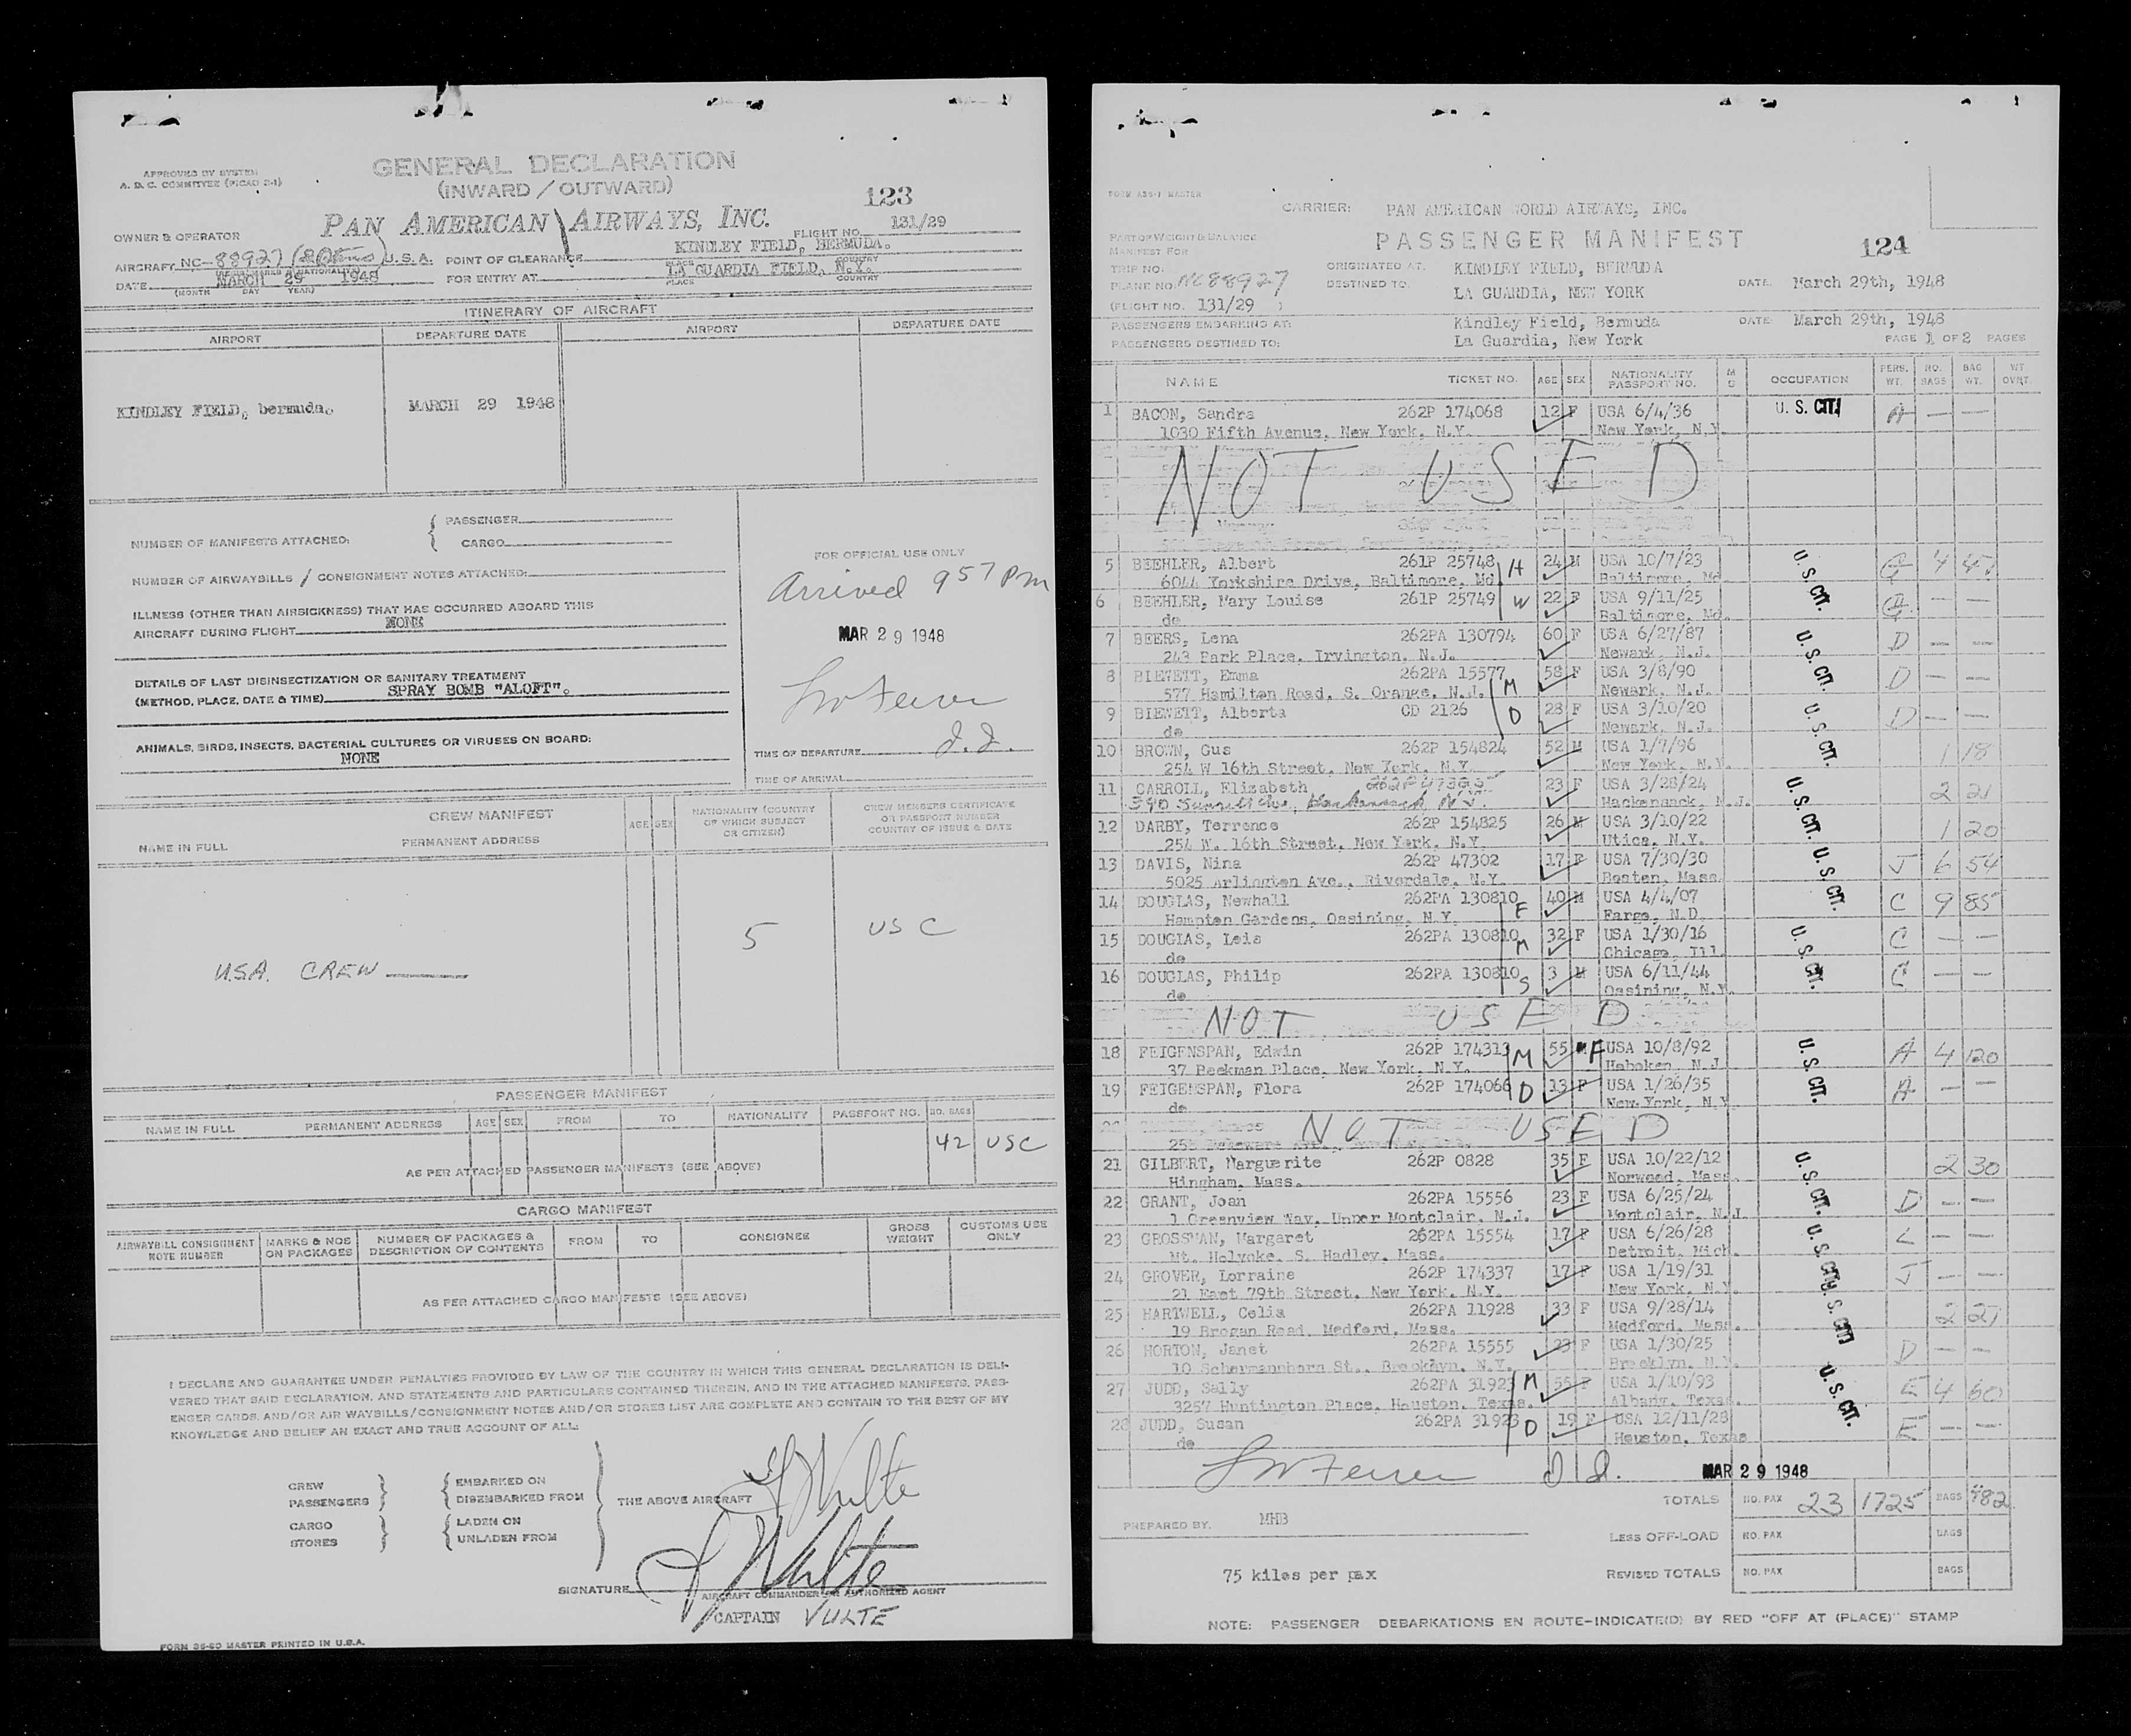 APPROVED BY SYSTEM
A. D. C. COMMITTEE (PICAO 2-1)
GENERAL DECLARATION
(INWARD / OUTWARD)
123
OWNER & OPERATOR PAN AMERICAN AIRWAYS, INC. FLIGHT NO. 131/29
AIRCRAFT NC-88927 U.S.A. POINT OF CLEARANCE KINDLEY FIELD, BERMUDA.
PLACE COUNTRY
DATE MARCH 29 1948 FOR ENTRY AT LA GUARDIA FIELD, N.Y.
(MONTH DAY YEAR) PLACE COUNTRY
ITINERARY OF AIRCRAFT
AIRPORT DEPARTURE DATE AIRPORT DEPARTURE DATE
KINDLEY FIELD, bermuda. MARCH 29 1948
NUMBER OF MANIFESTS ATTACHED: { PASSENGER
CARGO
NUMBER OF AIRWAYBILLS / CONSIGNMENT NOTES ATTACHED:
ILLNESS (OTHER THAN AIRSICKNESS) THAT HAS OCCURRED ABOARD THIS
AIRCRAFT DURING FLIGHT NONE
DETAILS OF LAST DISINSECTIZATION OR SANITARY TREATMENT
(METHOD, PLACE, DATE & TIME) SPRAY BOMB "ALOFT".
ANIMALS, BIRDS, INSECTS, BACTERIAL CULTURES OR VIRUSES ON BOARD:
NONE
FOR OFFICIAL USE ONLY
Arrived 957 PM
MAR 29 1948
TIME OF DEPARTURE
TIME OF ARRIVAL
CREW MANIFEST
NAME IN FULL PERMANENT ADDRESS AGE SEX
NATIONALITY (COUNTRY
OF WHICH SUBJECT
OR CITIZEN)
CREW MEMBERS CERTIFICATE
OR PASSPORT NUMBER
COUNTRY OF ISSUE & DATE
U.S.A. CREW 5 USC
PASSENGER MANIFEST
NAME IN FULL PERMANENT ADDRESS AGE SEX FROM TO NATIONALITY PASSPORT NO. NO. BAGS
42 USC
AS PER ATTACHED PASSENGER MANIFESTS (SEE ABOVE)
CARGO MANIFEST
AIRWAYBILL CONSIGNMENT NOTE NUMBER MARKS & NOS ON PACKAGES NUMBER OF PACKAGES & DESCRIPTION OF CONTENTS FROM TO CONSIGNEE GROSS WEIGHT CUSTOMS USE ONLY
AS PER ATTACHED CARGO MANIFESTS (SEE ABOVE)
I DECLARE AND GUARANTEE UNDER PENALTIES PROVIDED BY LAW OF THE COUNTRY IN WHICH THIS GENERAL DECLARATION IS DELI-
VERED THAT SAID DECLARATION, AND STATEMENTS AND PARTICULARS CONTAINED THEREIN, AND IN THE ATTACHED MANIFESTS, PASS-
ENGER CARDS, AND/OR AIR WAYBILLS/CONSIGNMENT NOTES AND/OR STORES LIST ARE COMPLETE AND CONTAIN TO THE BEST OF MY
KNOWLEDGE AND BELIEF AN EXACT AND TRUE ACCOUNT OF ALL:
CREW EMBARKED ON
PASSENGERS DISEMBARKED FROM THE ABOVE AIRCRAFT
CARGO LADEN ON
STORES UNLADEN FROM
SIGNATURE
AIRCRAFT COMMANDER OR AUTHORIZED AGENT
CAPTAIN VULTE
FORM 36-60 MASTER PRINTED IN U.S.A.
CARRIER: PAN AMERICAN WORLD AIRWAYS, INC.
PART OF WEIGHT & BALANCE
MANIFEST FOR
PASSENGER MANIFEST
124
TRIP NO. ORIGINATED AT: KINDLEY FIELD, BERMUDA
PLANE NO. NC88927 DESTINED TO: LA GUARDIA, NEW YORK DATE: March 29th, 1948
(FLIGHT NO. 131/29 )
PASSENGERS EMBARKING AT: Kindley Field, Bermuda DATE: March 29th, 1948
PASSENGERS DESTINED TO: La Guardia, New York PAGE 1 OF 2 PAGES
NAME TICKET NO. AGE SEX NATIONALITY PASSPORT NO. OCCUPATION PERS. WT. NO. BAGS BAG WT. WT OVRT.
1 BACON, Sandra 262P 174068 12 F USA 6/4/36 U. S. CIT. A — —
1030 Fifth Avenue, New York, N.Y. New York, N.Y.
NOT USED
5 BEEHLER, Albert 261P 25748 H 24 M USA 10/7/23 U. S. CIT. G 4
6044 Yorkshire Drive, Baltimore, Md. Baltimore, Md.
6 BEEHLER, Mary Louise 261P 25749 W 22 F USA 9/11/25 G — —
do Baltimore, Md.
7 BEERS, Lena 262PA 130794 60 F USA 6/27/87 U. S. CIT. D — —
243 Park Place, Irvington, N.J. Newark, N.J.
8 BIEWETT, Emma 262PA 15577 M 58 F USA 3/8/90 D — —
577 Hamilton Road, S. Orange, N.J. Newark, N.J.
9 BIEWETT, Alberta CD 2126 D 28 F USA 3/10/20 U. S. CIT. D — —
do Newark, N.J.
10 BROWN, Gus 262P 154824 52 M USA 1/7/96 1 18
254 W 16th Street, New York, N.Y. New York, N.Y.
11 CARROLL, Elizabeth 23 F USA 3/28/24 U. S. CIT. 2 21
Hackensack, N.J.
12 DARBY, Terrence 262P 154825 26 M USA 3/10/22 1 20
254 W. 16th Street, New York, N.Y. Utica, N.Y.
13 DAVIS, Nina 262P 47302 17 F USA 7/30/30 U. S. CIT. J 6 54
5025 Arlington Ave., Riverdale, N.Y. Boston, Mass.
14 DOUGLAS, Newhall 262PA 130810 F 40 M USA 4/4/07 C 9 85
Hampton Gardens, Ossining, N.Y. Fargo, N.D.
15 DOUGLAS, Lois 262PA 130810 M 32 F USA 1/30/16 U. S. CIT. C — —
do Chicago, Ill.
16 DOUGLAS, Philip 262PA 130810 S 3 M USA 6/11/44 C — —
do Ossining, N.Y.
NOT USED
18 FEIGENSPAN, Edwin 262P 174313 M 55 F USA 10/8/92 U. S. CIT. A 4 120
37 Beekman Place, New York, N.Y. Hoboken, N.J.
19 FEIGENSPAN, Flora 262P 174066 D 13 F USA 1/26/35 A — —
do New York, N.Y.
NOT USED
21 GILBERT, Marguerite 262P 0828 35 F USA 10/22/12 U. S. CIT. 2 30
Hingham, Mass. Norwood, Mass.
22 GRANT, Joan 262PA 15556 23 F USA 6/25/24 D — —
1 Greenview Way, Upper Montclair, N.J. Montclair, N.J.
23 GROSSMAN, Margaret 262PA 15554 17 F USA 6/26/28 U. S. CIT. L — —
Mt. Holyoke, S. Hadley, Mass. Detroit, Mich.
24 GROVER, Lorraine 262P 174337 17 F USA 1/19/31 J — —
21 East 79th Street, New York, N.Y. New York, N.Y.
25 HARTWELL, Celia 262PA 11928 33 F USA 9/28/14 U. S. CIT. 2 27
19 Brogan Road, Medford, Mass. Medford, Mass.
26 HORTON, Janet 262PA 15555 23 F USA 1/30/25 D — —
10 Schermanhorn St., Brooklyn, N.Y. Brooklyn, N.Y.
27 JUDD, Sally 262PA 31923 M 55 F USA 1/10/93 U. S. CIT. E 4 60
3257 Huntington Place, Houston, Texas. Albany, Texas.
28 JUDD, Susan 262PA 31923 D 19 F USA 12/11/28 E — —
do Houston, Texas
MAR 29 1948
TOTALS NO. PAX 23 1725 BAGS 482
PREPARED BY. MHB
LESS OFF-LOAD NO. PAX BAGS
75 kilos per pax REVISED TOTALS NO. PAX BAGS
NOTE: PASSENGER DEBARKATIONS EN ROUTE-INDICATE(D) BY RED "OFF AT (PLACE)" STAMP